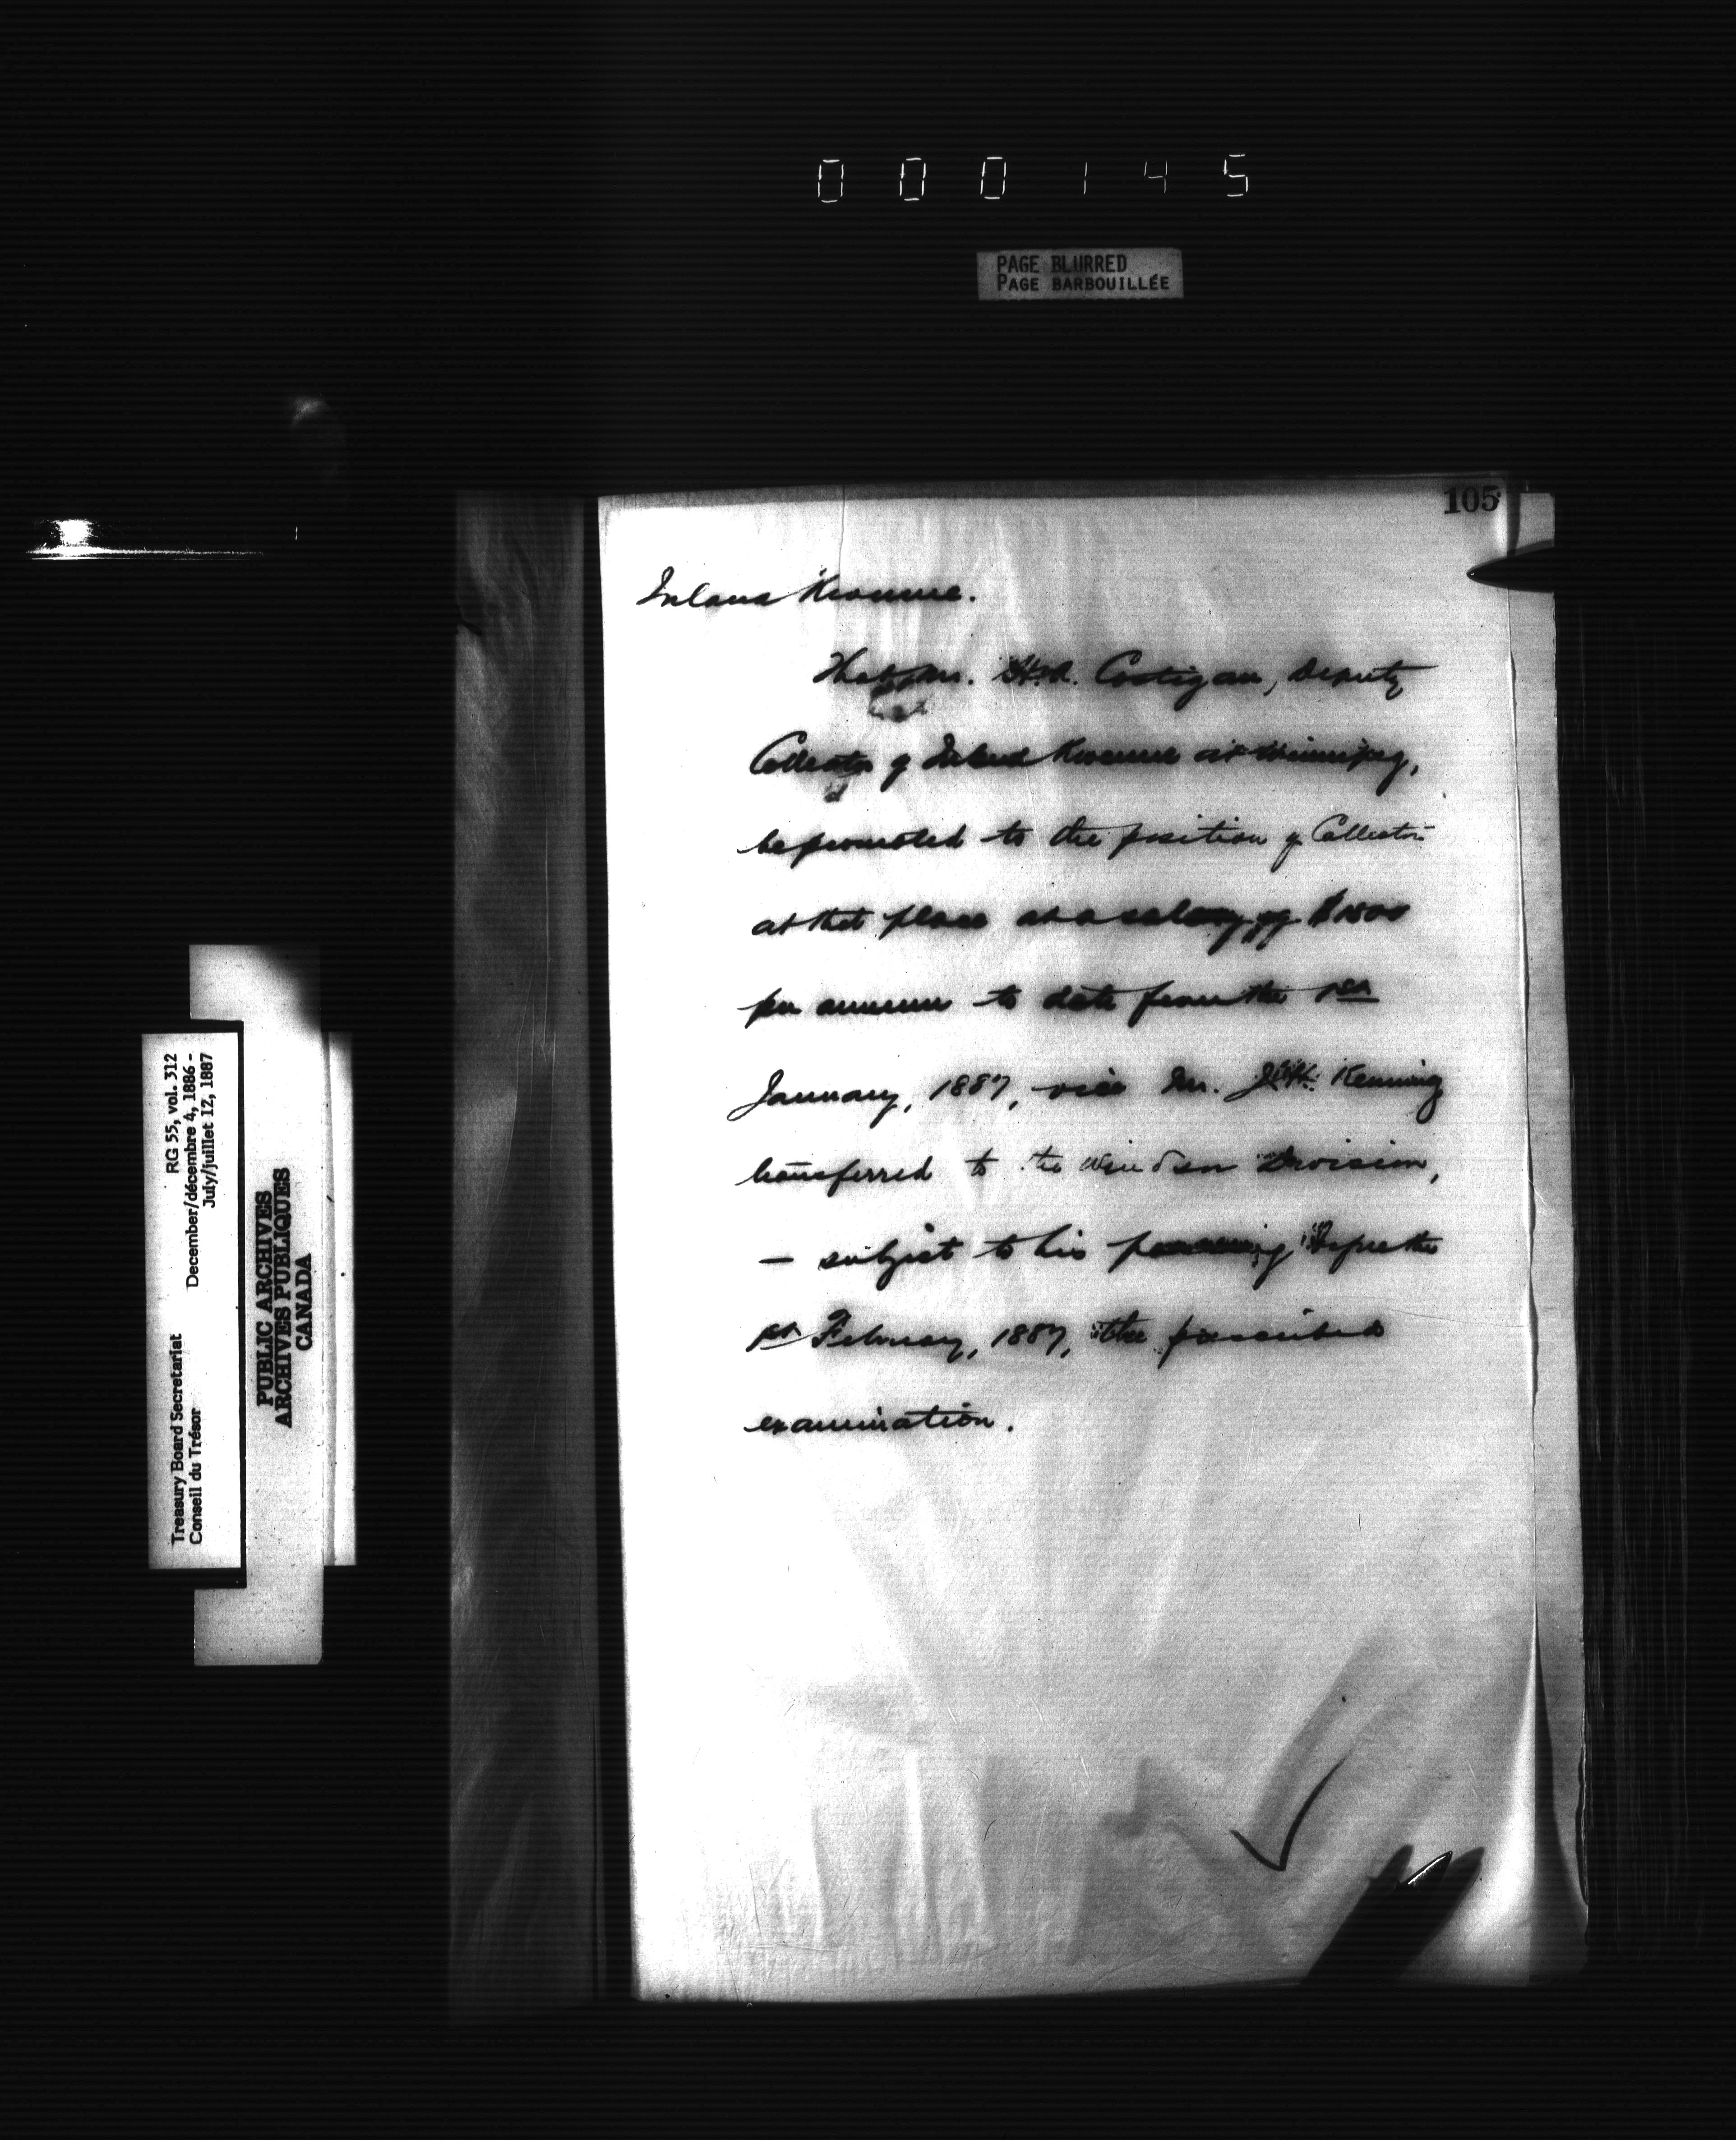 000145
PAGE BLURRED
PAGE BARBOUILLÉE
105
Inland Revenue.
That Mr. H.A. Costigan, Deputy
Collector of Inland Revenue at Winnipeg,
be promoted to the position of Collector
at that place at a salary of $1500
per annum to date from the 1st
January, 1887, vice Mr. J.H. Kenning
transferred to the Windsor Division,
— subject to his passing before the
1st February, 1887, the prescribed
examination.
Treasury Board Secretariat
Conseil du Trésor
RG 55, vol. 312
December/décembre 4, 1886 -
July/juillet 12, 1887
PUBLIC ARCHIVES
ARCHIVES PUBLIQUES
CANADA